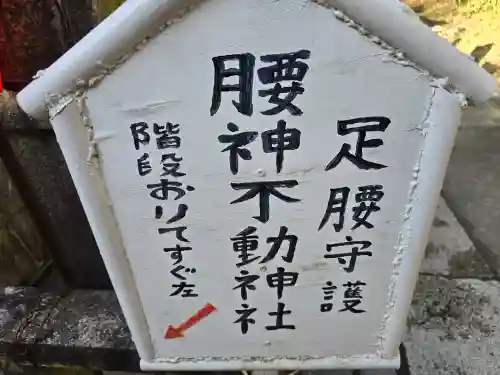 足腰守護
腰神不動神社
月ネ力ネ
階段おりてすぐ左